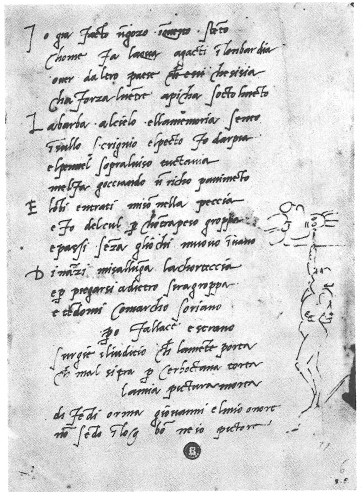 I o gia facto ngozo i questo steto
Chome fa laqua agacti i lombardia
over daltro paese che essi chesisia
cha forza lvetre apicha socto lmeto
L abarba alcielo ellamemoria sento
i sullo scrignio elpecto fo darpia
elpennel sopraluiso tuctavia
melfa gocciando u richo pavimeto
E lobi entrati miso nella peccia
e fo delcul p chotrapeso groppa
e passi seza gliochi muovo ivano
D inazi misalluga lachorteccia
e p piegarsi adietro siragroppa
e tedomi comarcho soriano
po fallace e strano
surgie il iudicio ch lamete porta
ch mal sipra p cerboctana torta
lamia pictura morta
di fedi orma giovanni elmio onore
no sedo i loco bo ne io pictore